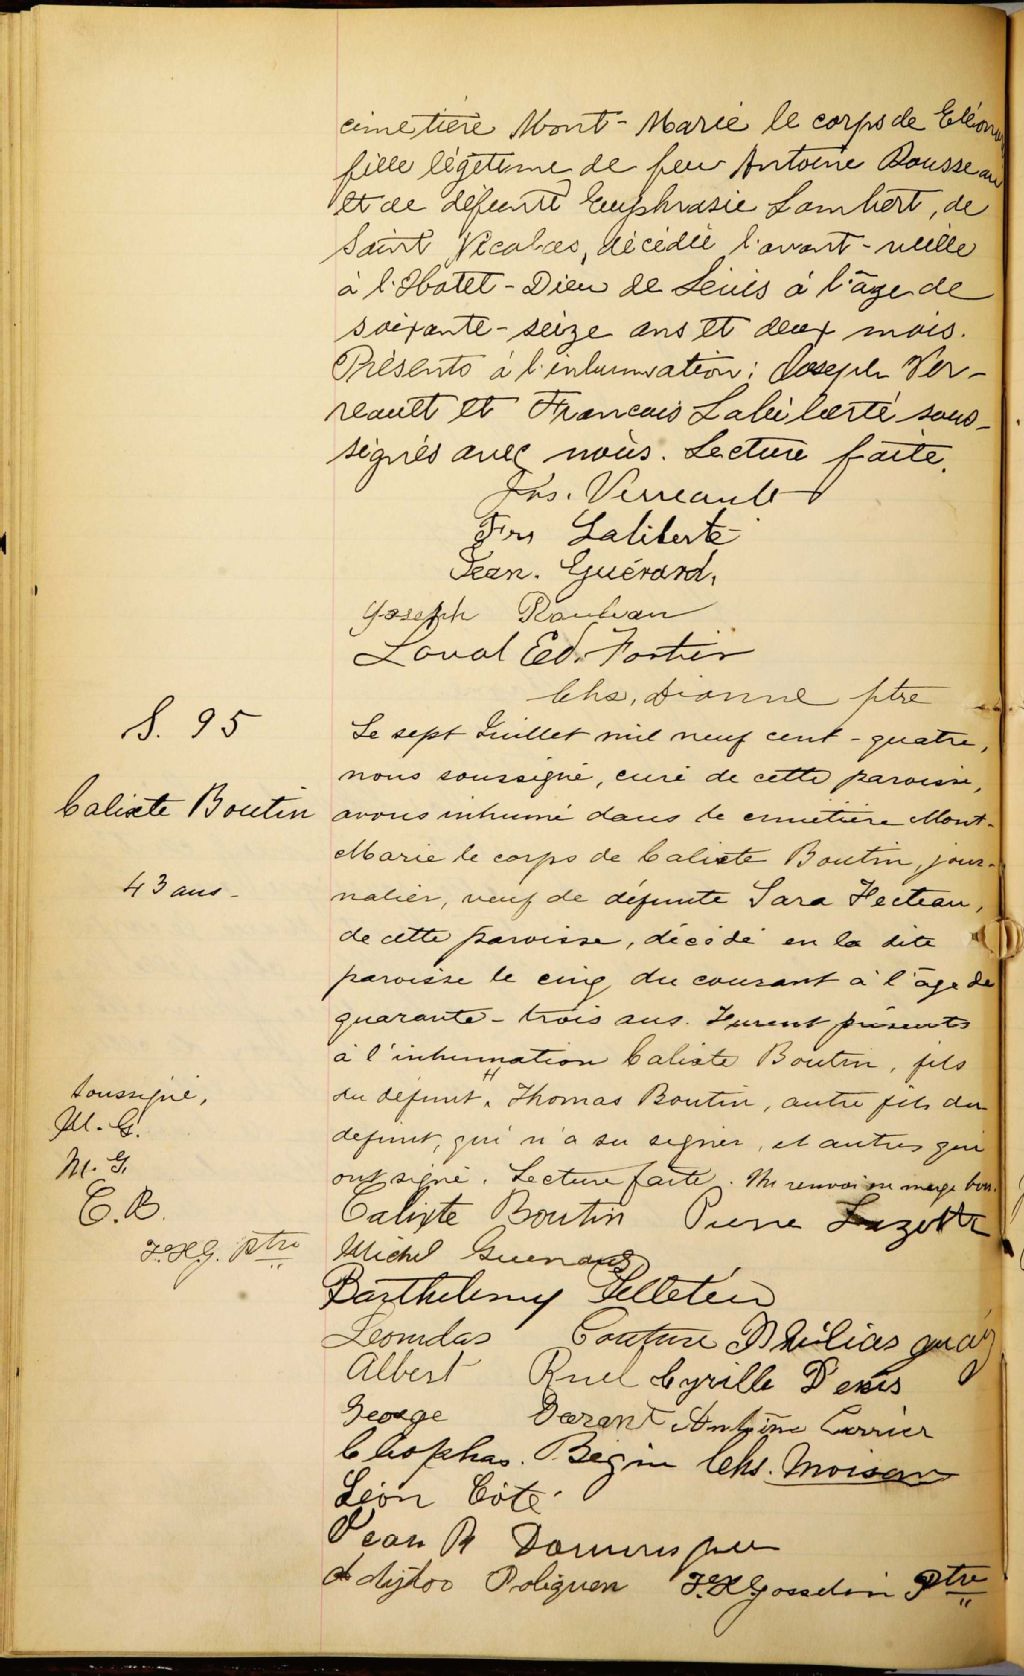 cimetière Mont-Marie le corps de Eléonore
fille légitime de feu Antoine Rousseau
et de défunte Euphrasie Lambert, de
Saint Nicolas, décédée l'avant-veille
à l'Hotel-Dieu de Lévis à l'âge de
soixante-seize ans et deux mois.
Présents à l'inhumation: Joseph Ver-
reault et Francois Laliberté sous-
signés avec nous. Lecture faite.
Jos. Verreault
Frs Laliberté
Jean. Guérard,
Joseph Rouleau
Laval Ed. Fortier
Chs, Dionne ptre
S. 95
Calixte Boutin
43 ans-
Le sept Juillet mil neuf cent-quatre,
nous soussigné, curé de cette paroisse,
avons inhumé dans le cimetière Mont-
Marie le corps de Calixte Boutin, jour-
nalier, veuf de défunte Sara Hecteau,
de cette paroisse, décédé en la dite
paroisse le cinq du courant à l'âge de
quarante-trois ans. Furent présents
à l'inhumation Calixte Boutin, fils
du défunt, Thomas Boutin, autre fils du
défunt, qui n'a su signer, et autres qui
ont signé. Lecture faite. Un renvoi en marge bon.
soussigné,
M. G.
M. G
C. B.
F.X.G. Ptre
Calixte Boutin Pierre
Michel
Barthelemy Pelletier
Leonidas Couture Philias
Albert Ruel Cyrille Denis
George Antoine Carrier
Cléophas. Bégin Chs. Moisan
Léon Côté
Jean
F.X.Gosselin Ptre